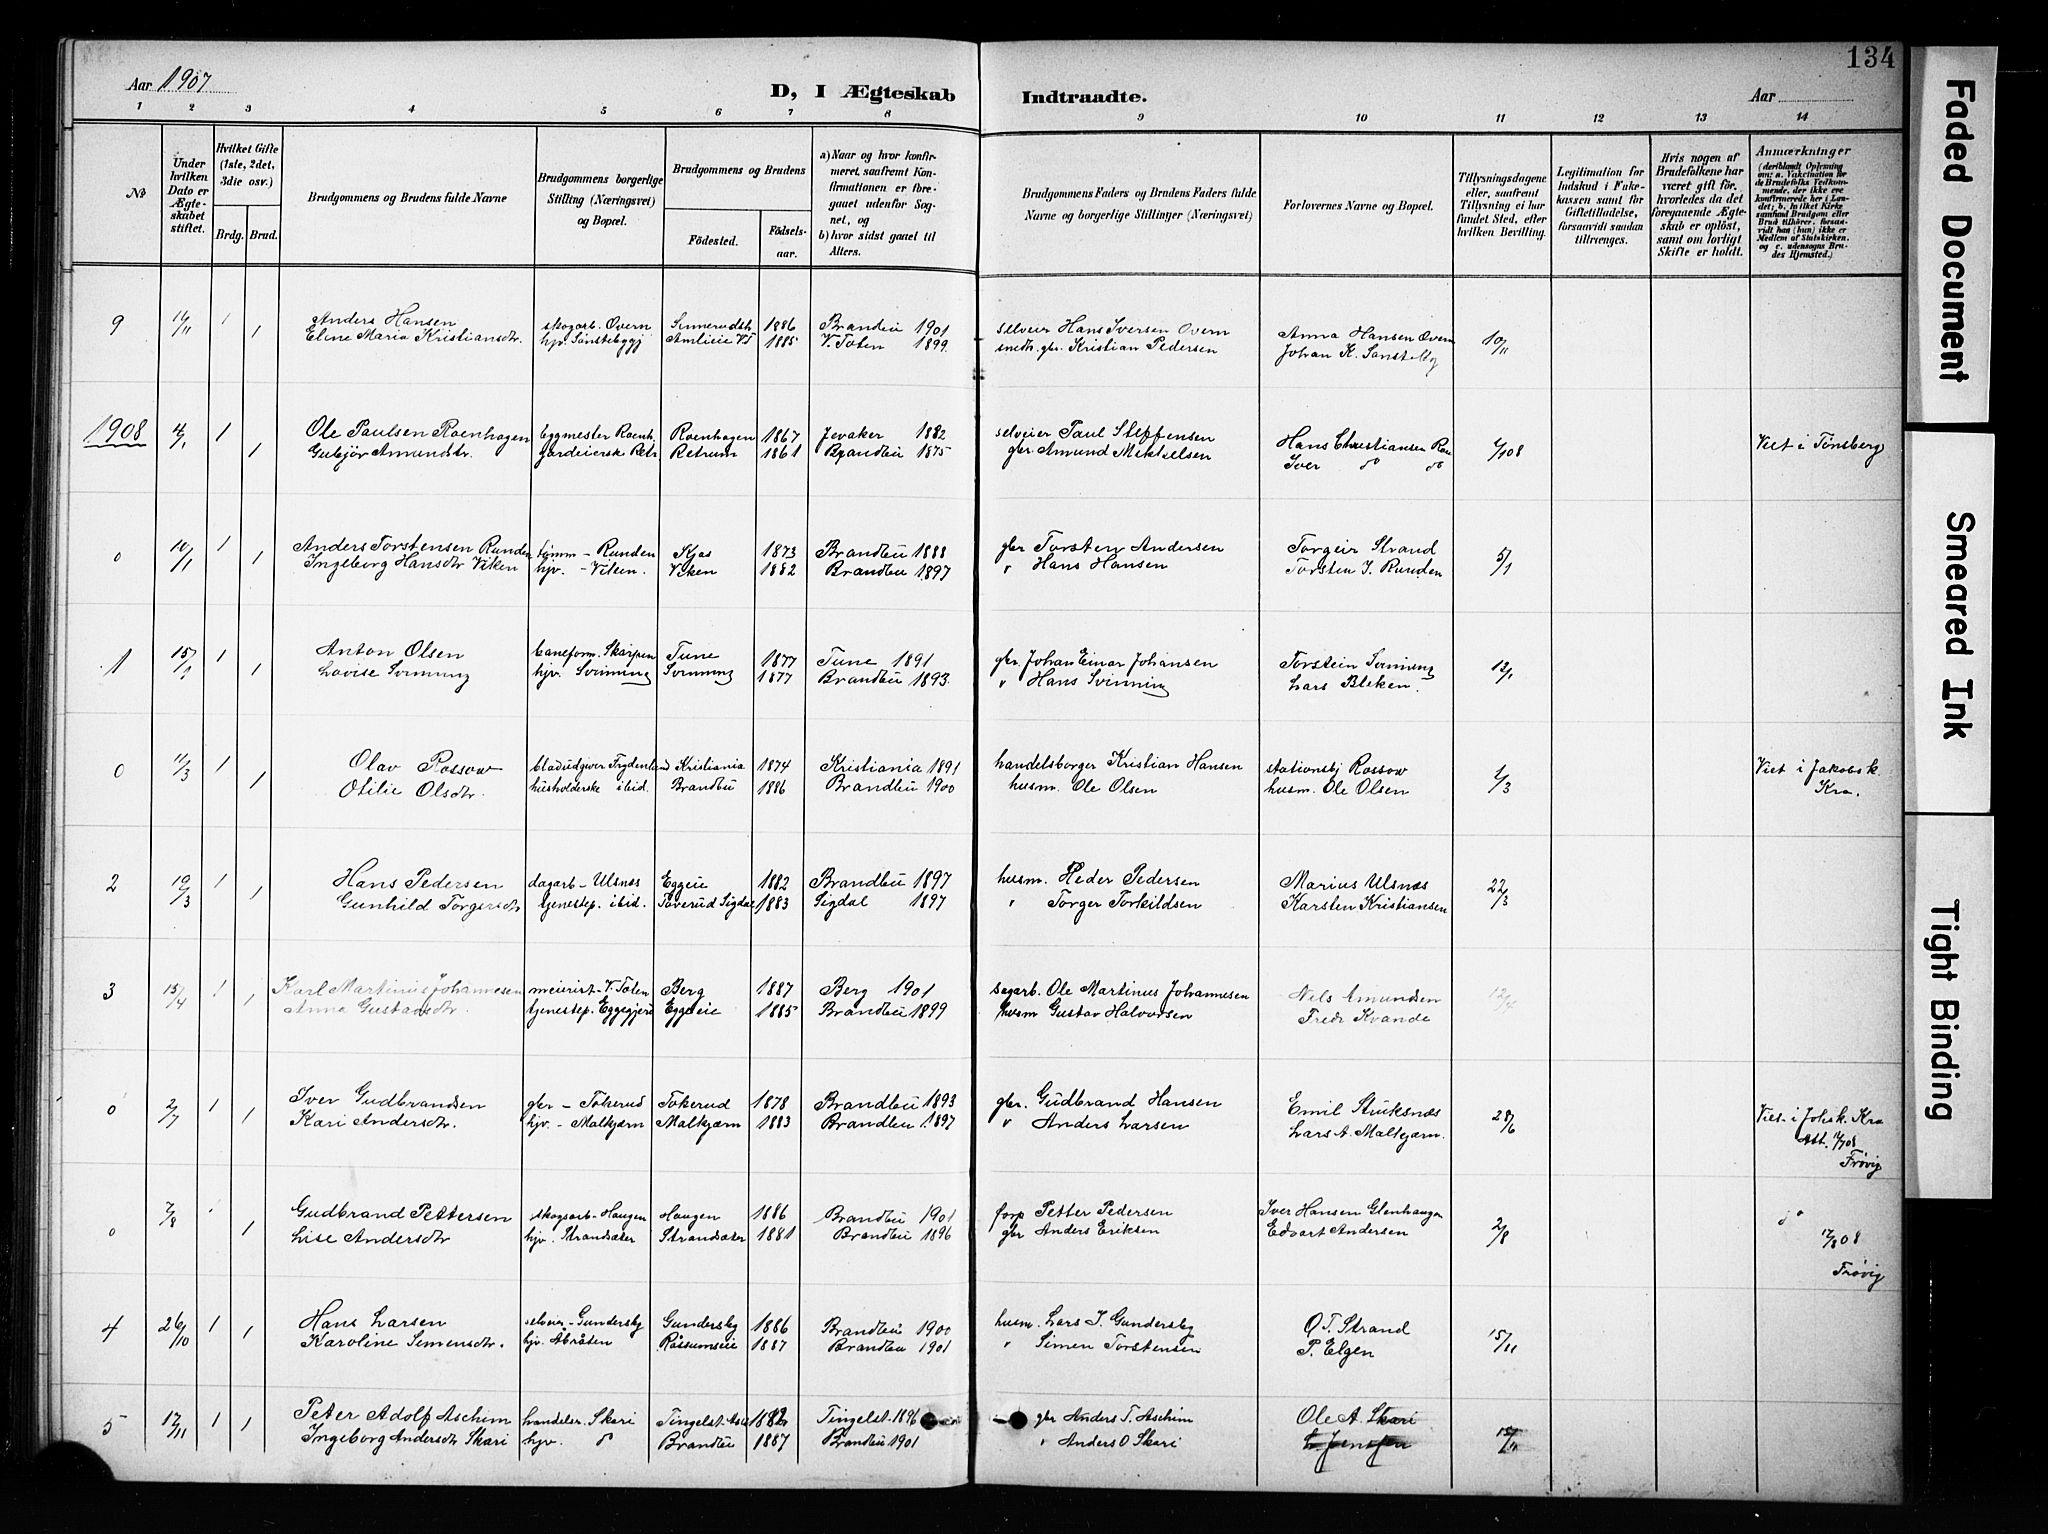 134
Aar 1907
D, I Ægteskab Indtraadte.
Aar
1 2 3 4 5 6 7 8 9 10 11 12 13 14
No
Under hvilken Dato er Ægteskabet stiftet.
Hvilket Gifte (1ste, 2det, 3die osv.)
Brdg. Brud.
Brudgommens og Brudens fulde Navne
Brudgommens borgerlige Stilling (Næringsvei) og Bopæl.
Brudgommens og Brudens
Födested. Födselsaar.
a) Naar og hvor konfirmeret, saafremt Konfirmationen er foregaaet udenfor Sognet, og
b) hvor sidst gaaet til Alters.
Brudgommens Faders og Brudens Faders fulde Navne og borgerlige Stillinger (Næringsvei)
Forlovernes Navne og Bopæl.
Tillysningsdagene eller, saafremt Tillysning ei har fundet Sted, efter hvilken Bevilling.
Legitimation for Indskud i Fakekassen samt for Giftetilladelse, forsaavidt saadan tiltrænges.
Hvis nogen af Brudefolkene har været gift för, hvorledes da det foregaaende Ægteskab er oplöst, samt om lovligt Skifte er holdt.
Anmærkninger (deriblandt Oplysning om: a. Vakcination for de Brudefolks Vedkommende, der ikke ere konfirmerede her i Landet; b. hvilket Kirkesamfund Brudgom eller Brud tilhörer, forsaavidt han (hun) ikke er Medlem af Statskirken, og c. udensogns Brudes Hjemsted.)
9 14/11 1 Anders Hansen skogarb. Overn 1886 Brandbu 1901 selveier Hans Iversen Overn Anna Hansen Overn 10/11
1 Eline Maria Kristiansdr. hjv. 1885 V. Toten 1899. gbr. Kristian Pedersen Johan K.
1908 4/1 1 Ole Paulsen Roenhagen bygmester Roenh. Roenhagen 1867 Jevaker 1882 selveier Paul Steffensen Hans Christiansen 6/1 08 Viet i Tønsberg
1 Gubjör Amundsdr. Retrum 1861 Brandbu 1875 gbr. Amund Mikkelsen Iver do do
0 10/1 1 Anders Torstensen Runden tömm - Runden Kjos 1873 Brandbu 1888 gbr Torsten Andersen Torgeir Strand 5/1
1 Ingeborg Hansdr Viken hjv. - Viken. Viken 1882 Brandbu 1897 " Hans Hansen Torsten J. Runden
1 15/1 1 Anton Olsen baneform. Skarpen Tune 1877 Tune 1891 gbr. Johan Einar Johansen Torstein Svinning 12/1
1 Lovise Svinning hjv. Svinning Svinning 1877 Brandbu 1893. " Hans Svinning Lars Bleken.
0 11/3 1 Olav Rossow bladudgiver Frydenlund Kristiania 1874 Kristiania 1891 handelsborger Kristian Hansen stationsbj Rossow 1/3 Viet i Jakobs k.
1 Otilie Olsdr. husholderske ibid. Brandbu 1886 Brandbu 1900 husm. Ole Olsen husm. Ole Olsen Kra.
2 19/3 1 Hans Pedersen dagarb - Ulsnes Eggeie 1882 Brandbu 1897 husm. Peder Pedersen Marius Ulsnes 22/3
1 Gunhild Torgersdr tjenestep. ibid. Toverud Sigdal 1883 Sigdal 1897 " Torger Torkildsen Karsten Kristiansen
3 15/4 1 Karl Martinus Johannesen meierist - V. Toten Berg 1887 Berg 1901 sagarb. Ole Martinus Johannesen Nels Amundsen 12/4
1 Anna Gustavsdr. tjenestep. Eggegjerd Eggeie 1885 Brandbu 1899 husm Gustav Halvorsen Fredr Kvande
0 2/7 1 Iver Gudbrandsen gbr - Tokerud Tokerud 1878 Brandbu 1893 gbr. Gudbrand Hansen Emil Struksnæs 28/6 Viet i Johsk. Kra
1 Kari Andersdr. hjv. - Malkjærn Malkjærn 1883 Brandbu 1897 " Anders Larsen Lars A. Malkjærn. Att. 11/7 08
Frövig
0 7/8 1 Gudbrand Pettersen skogsarb - Haugen Haugen 1886 Brandbu 1901 forp Petter Pedersen Iver Hansen Glenhaugen 2/8 do
1 Lise Andersdr hjv. Strandsæter Strandsæter 1881 Brandbu 1896 gbr Anders Eriksen Edvart Andersen 12/8 08
Frövig
4 26/10 1 Hans Larsen selveier - Gundersby Gundersby 1886 Brandbu 1900 husm. Lars J. Gundersby O.T. Strand 15/11
1 Karoline Simensdr. hjv. Åbråten Råssumseie 1887 Brandbu 1901 " Simen Torstensen P. Elgen
5 17/11 1 Peter Adolf Aschim handeler. Skari Tingelst. 1882 Tingelst. 1896 gbr Anders T. Aschim Ole A. Skari 15/11
1 Ingeborg Andersdr Skari hjv. do Brandbu 1887 Brandbu 1901 " Anders O Skari L. Jensen
Faded Document
Smeared Ink
Tight Binding